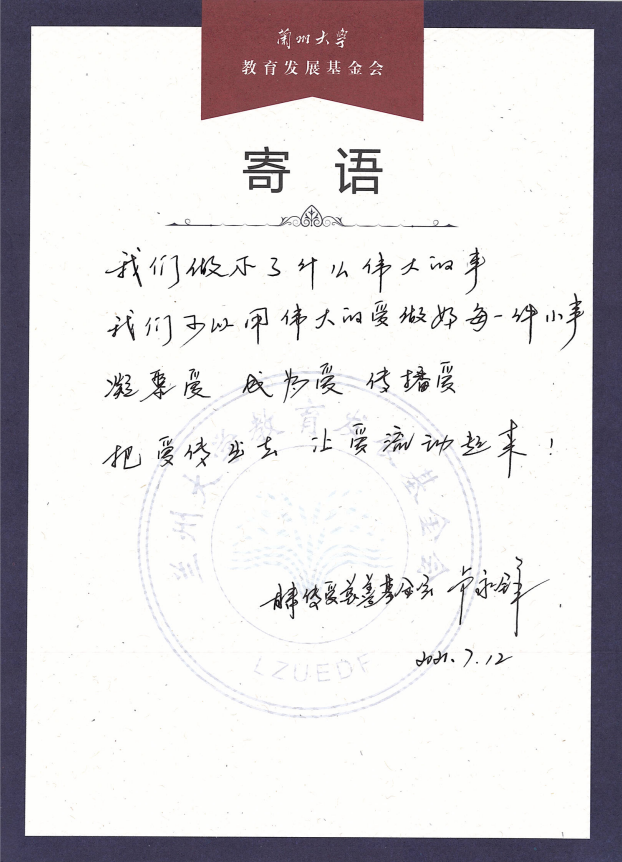 兰州大学
教育发展基金会
寄 语
我们做不了什么伟大的事
我们可以用伟大的爱做好每一件小事
凝聚爱 成为爱 传播爱
把爱传出去 让爱流动起来！
传爱慈善基金会 卢永锋
2021.7.12
兰州大学教育发展基金会
LZUEDF